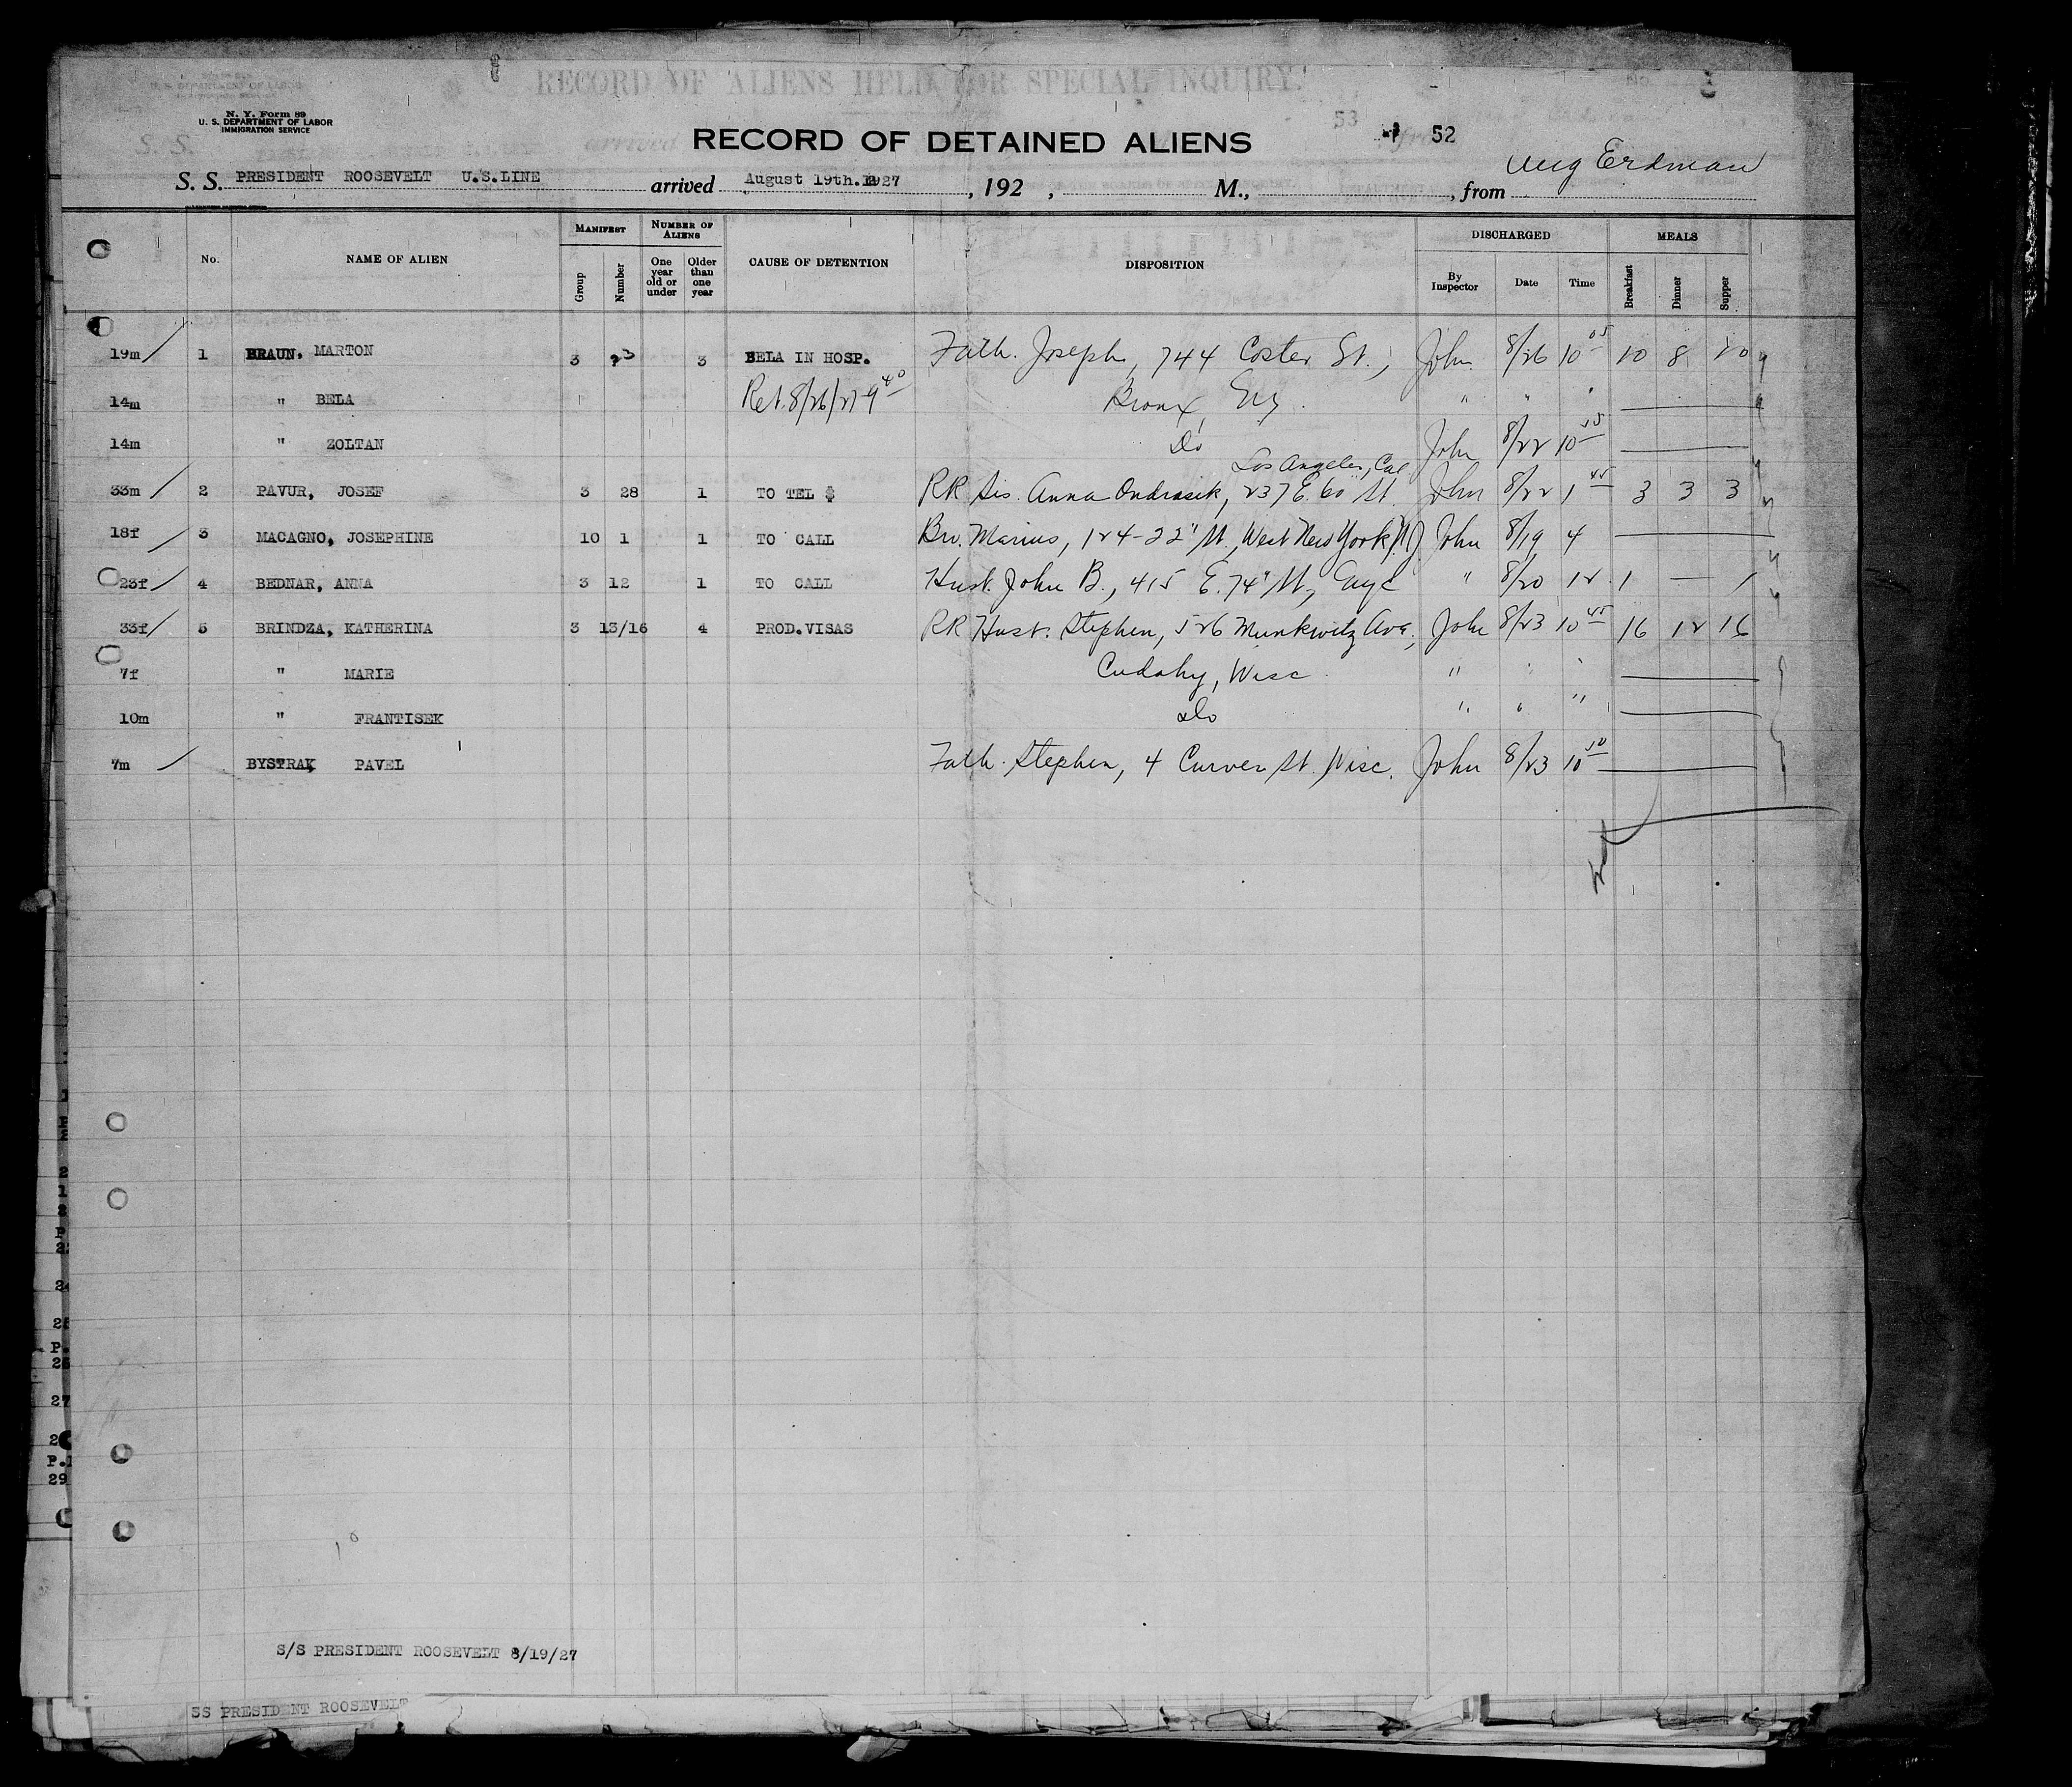 RECORD OF ALIENS HELD FOR SPECIAL INQUIRY
N. Y. Form 89
U. S. DEPARTMENT OF LABOR
IMMIGRATION SERVICE
53 52
RECORD OF DETAINED ALIENS
S. S. PRESIDENT ROOSEVELT U.S.LINE arrived August 19th. 1927, 192 , M., , from Erdman
No. NAME OF ALIEN MANIFEST Group Number NUMBER OF ALIENS One year old or under Older than one year CAUSE OF DETENTION DISPOSITION DISCHARGED By Inspector Date Time MEALS Breakfast Dinner Supper
19m 1 BRAUN, MARTON 3 3 BELA IN HOSP. Fath. Joseph, 744 Coster St., John 8/26 10 05 10 8 10
14m " BELA Ret. 8/26/27 9 40 Bronx, " " "
14m " ZOLTAN Do John 8/22 10
33m 2 PAVUR, JOSEF 3 28 1 TO TEL $ RR Sis. Anna Ondrasik, 237 E. 60" St. Los Angeles, Cal. John 8/22 1 45 3 3 3
18f 3 MACAGNO, JOSEPHINE 10 1 1 TO CALL Bro. Marius, 124-22" St., West New York NJ John 8/19 4
23f 4 BEDNAR, ANNA 3 12 1 TO CALL Husb. John B., 415 E. 74" St., " 8/20 12 1 — 1
33f 5 BRINDZA, KATHERINA 3 13/16 4 PROD.VISAS RR Husb. Stephen, 526 Munkwitz Ave., John 8/23 10 45 16 12 16
7f " MARIE Cudahy, Wisc. " " "
10m " FRANTISEK Do " " "
7m BYSTRAK PAVEL Fath. Stephen, 4 Curven St. Wisc. John 8/23 10 50
S/S PRESIDENT ROOSEVELT 8/19/27
SS PRESIDENT ROOSEVELT